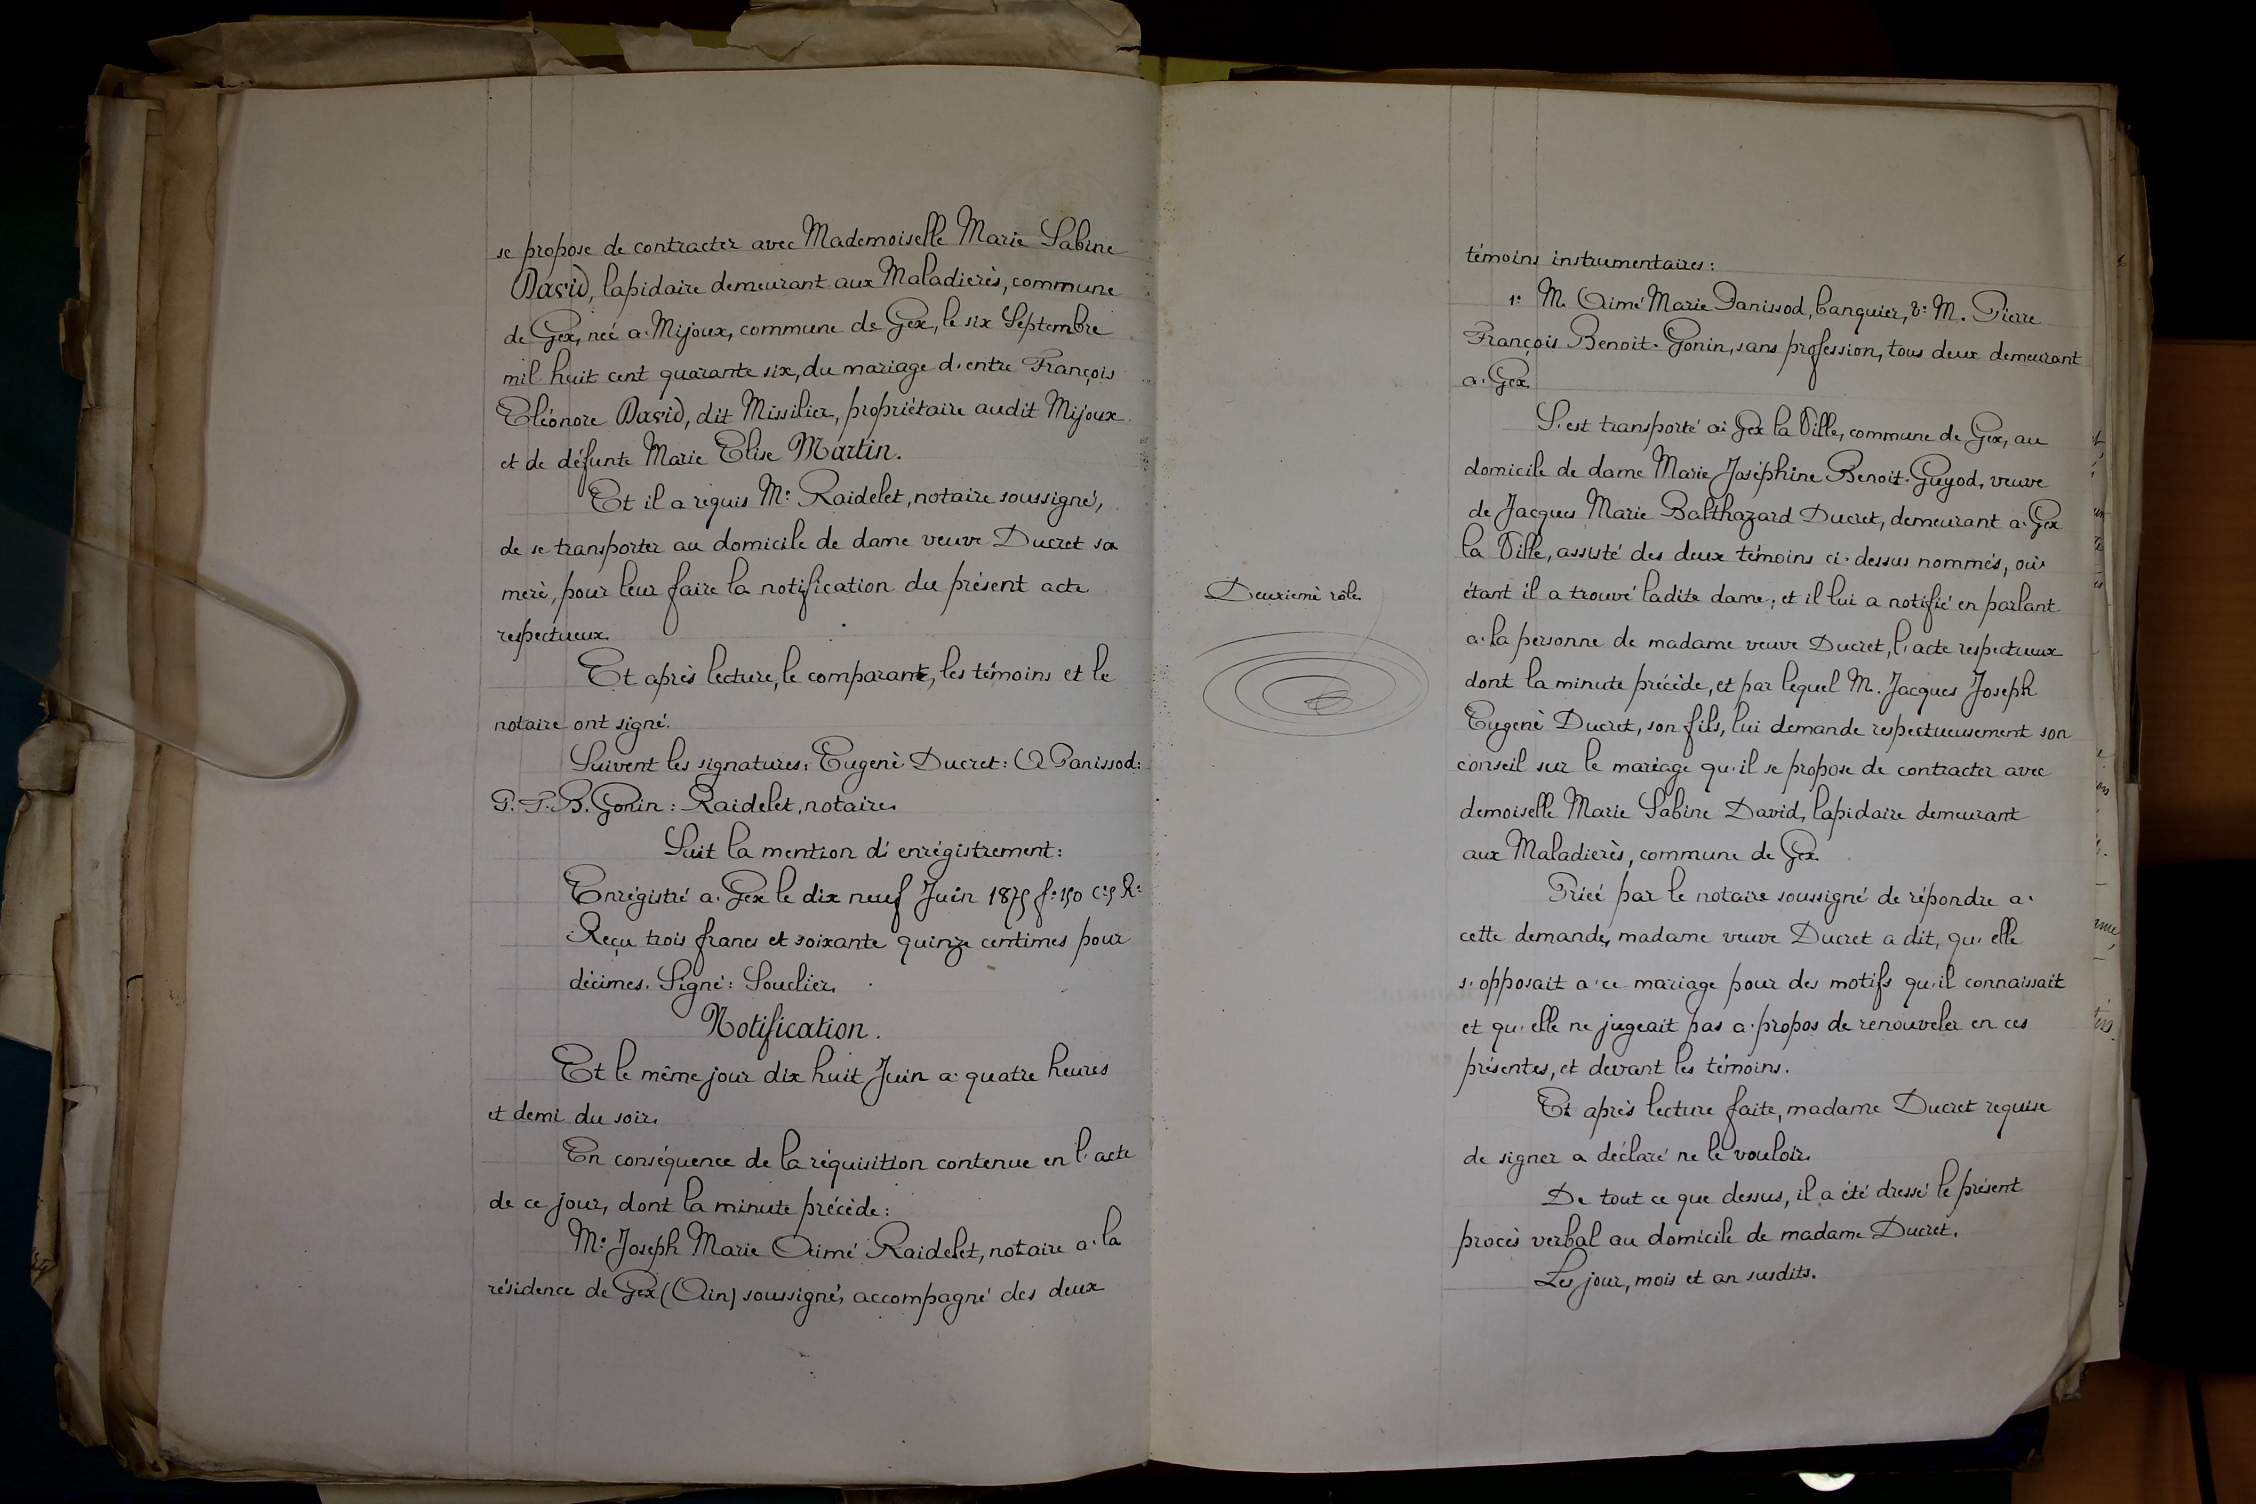 se propose de contracter avec Mademoiselle Marie Sabine
David, lapidaire demeurant aux Maladières, commune
de Gex, née à Mijoux, commune de Gex, le six Septembre
mil huit cent quarante six, du mariage d'entre François
Eléonore David, dit Missilier, propriétaire audit Mijoux
et de défunte Marie Elise Martin.
Et il a requis Me Raidelet, notaire soussigné,
de se transporter au domicile de dame veuve Ducret sa
mère, pour leur faire la notification du présent acte
respectueux.
Et après lecture, le comparant, les témoins et le
notaire ont signé.
Suivent les signatures: Eugenè Ducret: A Panissod:
P. F. B. Gonin: Raidelet, notaire.
Suit la mention d'enrégistrement:
Enrégistré à Gex le dix neuf Juin 1875 fo 150 co 5 Ro
Reçu trois francs et soixante quinze centimes pour
décimes. Signé: Souclier.
Notification.
Et le même jour dix huit Juin à quatre heures
et demi du soir.
En conséquence de la réquisition contenue en l'acte
de ce jour, dont la minute précède:
Me Joseph Marie Aimé Raidelet, notaire à la
résidence de Gex (Ain) soussigné, accompagné des deux
Deuxiemè rôle.
témoins instrumentaires:
1o M. Aimé Marie Panissod, banquier, 2o M. Pierre
François Benoit-Gonin, sans profession, tous deux demeurant
à Gex
S'est transporté à Gex la Ville, commune de Gex, au
domicile de dame Marie Joséphine Benoit-Guyod, veuve
de Jacques Marie Balthazard Ducret, demeurant à Gex
la Ville, assisté des deux témoins ci-dessus nommés, où
étant il a trouvé ladite dame; et il lui a notifié en parlant
à la personne de madame veuve Ducret, l'acte respectueux
dont la minute précède, et par lequel M. Jacques Joseph
Eugenè Ducret, son fils, lui demande respectueusement son
conseil sur le mariage qu'il se propose de contracter avec
demoiselle Marie Sabine David, lapidaire demeurant
aux Maladières, commune de Gex.
Priéé par le notaire soussigné de répondre à
cette demande, madame veuve Ducret a dit, qu'elle
s'opposait à ce mariage pour des motifs qu'il connaissait
et qu'elle ne jugeait pas à propos de renouveler en ces
présentes, et devant les témoins.
Et après lecture faite, madame Ducret requise
de signer a déclaré ne le vouloir.
De tout ce que dessus, il a été dressé le présent
procès verbal au domicile de madame Ducret.
Les jour, mois et an susdits.